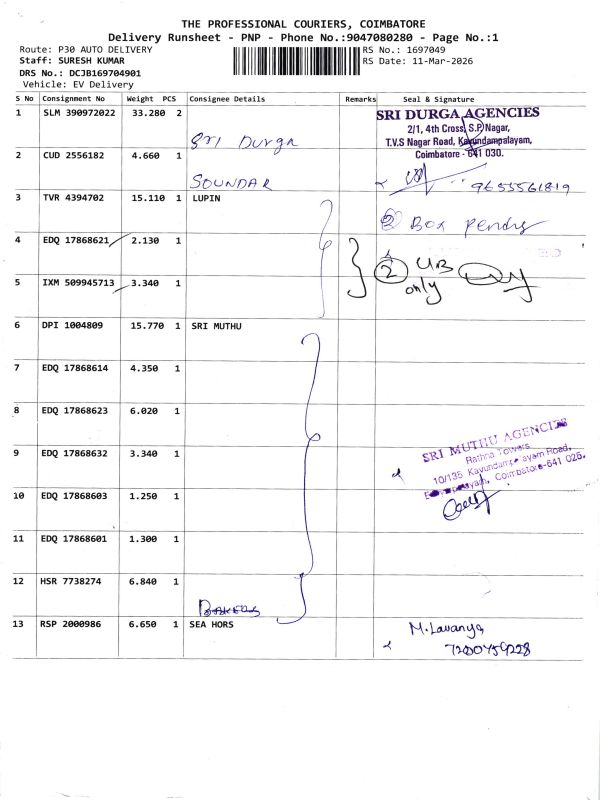 THE PROFESSIONAL COURIERS, COIMBATORE
Delivery Runsheet - PNP - Phone No.:9047080280 - Page No.:1
Route: P30 AUTO DELIVERY RS No.: 1697049
Staff: SURESH KUMAR RS Date: 11-Mar-2026
DRS No.: DCJB169704901
Vehicle: EV Delivery
S No Consignment No Weight PCS Consignee Details Remarks Seal & Signature
1 SLM 390972022 33.280 2 Sri Durga
SRI DURGA AGENCIES
2/1, 4th Cross, S.P. Nagar,
T.V.S Nagar Road, Kavundampalayam,
Coimbatore - 641 030.
2 CUD 2556182 4.660 1 SOUNDAR
9655561819
3 TVR 4394702 15.110 1 LUPIN
2 Box
4 EDQ 17868621 2.130 1
2
only
5 IXM 509945713 3.340 1
6 DPI 1004809 15.770 1 SRI MUTHU
7 EDQ 17868614 4.350 1
8 EDQ 17868623 6.020 1
9 EDQ 17868632 3.340 1
SRI MUTHU AGENCIES
Rathna Towers
10/135, Kavundampalayam Road,
Coimbatore-641 026.
10 EDQ 17868603 1.250 1
11 EDQ 17868601 1.300 1
12 HSR 7738274 6.840 1
13 RSP 2000986 6.650 1 SEA HORS
M. Lavanya
7200759228